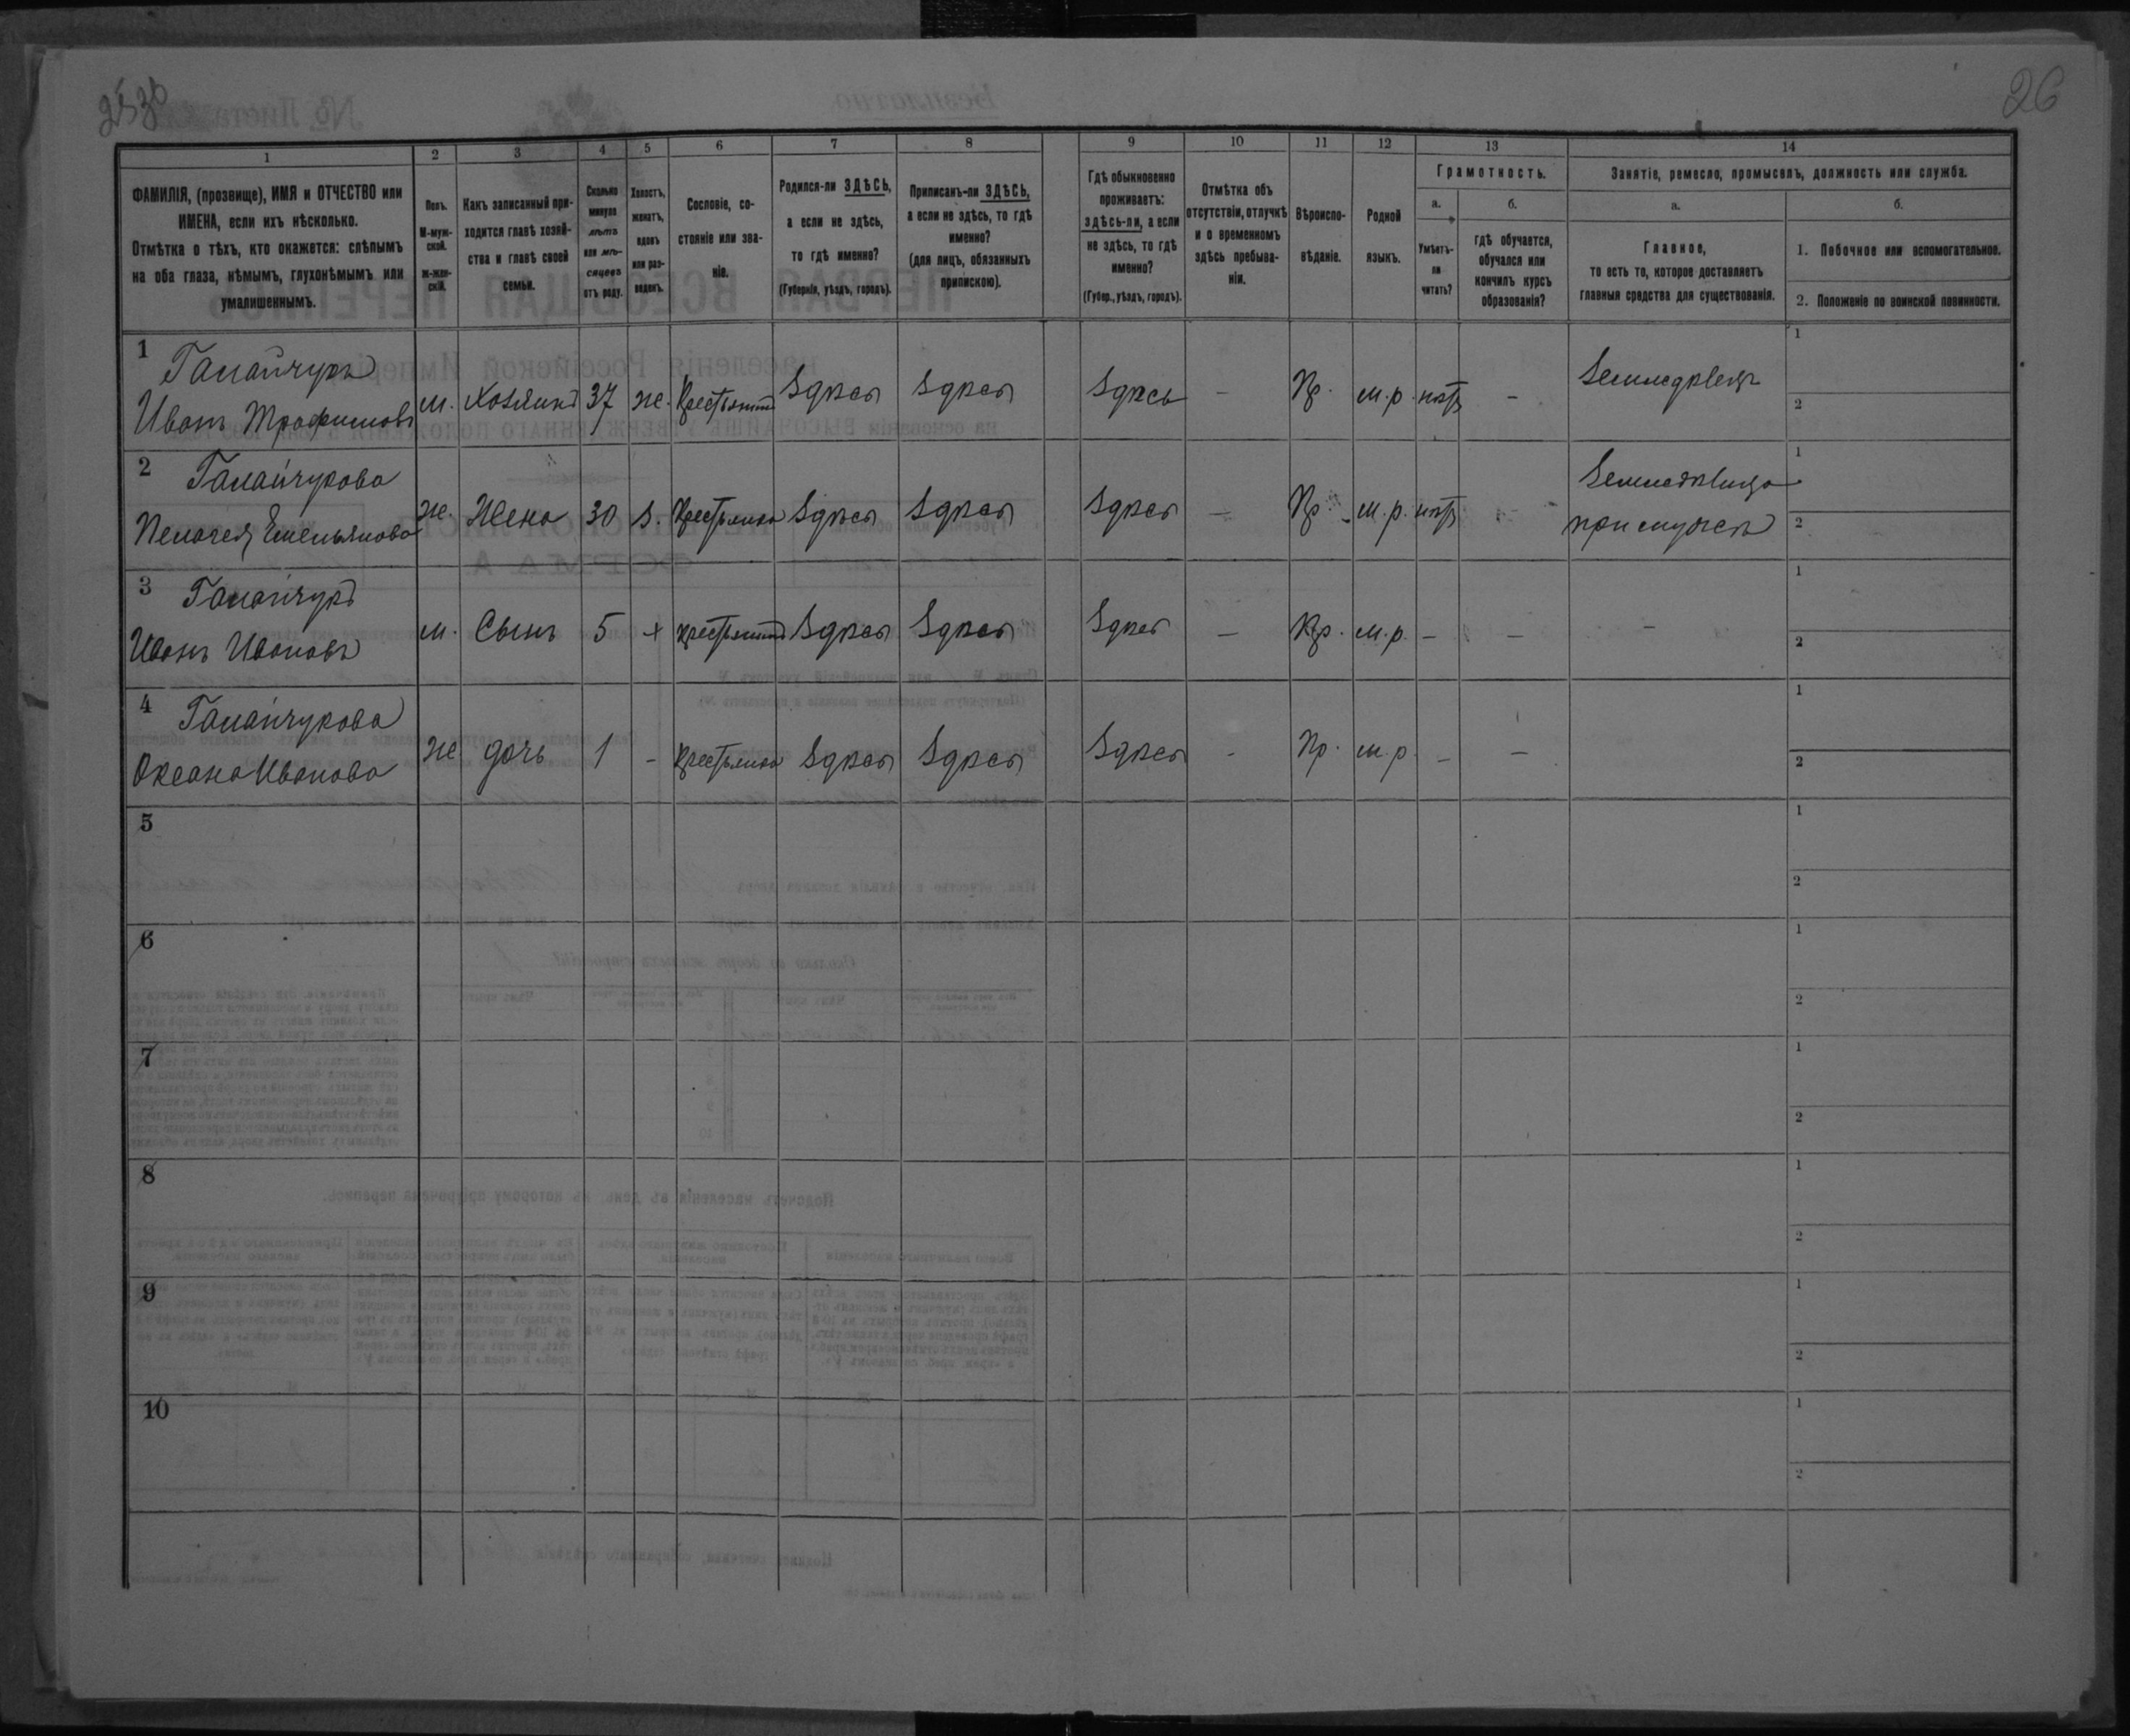 26
1 2 3 4 5 6 7 8 9 10 11 12 13 14
ФАМИЛІЯ, (прозвище), ИМЯ и ОТЧЕСТВО или
ИМЕНА, если ихъ нѣсколько.
Отмѣтка о тѣхъ, кто окажется: слѣпымъ
на оба глаза, нѣмымъ, глухонѣмымъ или
умалишеннымъ.
Полъ.
М-муж-
ской.
ж-жен-
скій.
Какъ записанный при-
ходится главѣ хозяй-
ства и главѣ своей
семьи.
Сколько
минуло
лѣтъ
или мѣ-
сяцевъ
отъ роду.
Холостъ,
женатъ,
вдовъ
или раз-
веденъ.
Сословіе, со-
стояніе или зва-
ніе.
Родился-ли ЗДѢСЬ,
а если не здѣсь,
то гдѣ именно?
(Губернія, уѣздъ, городъ).
Приписанъ-ли ЗДѢСЬ,
а если не здѣсь, то гдѣ
именно?
(для лицъ, обязанныхъ
припискою).
Гдѣ обыкновенно
проживаетъ:
здѣсь-ли, а если
не здѣсь, то гдѣ
именно?
(Губер., уѣздъ, городъ).
Отмѣтка объ
отсутствіи, отлучкѣ
и о временномъ
здѣсь пребыва-
ніи.
Вѣроиспо-
вѣданіе.
Родной
языкъ.
Грамотность.
а.
Умѣетъ-
ли
читать?
б.
гдѣ обучается,
обучался или
кончилъ курсъ
образованія?
Занятіе, ремесло, промыселъ, должность или служба.
а.
Главное,
то есть то, которое доставляетъ
главныя средства для существованія.
б.
1. Побочное или вспомогательное.
2. Положеніе по воинской повинности.
1 Галайчукъ
Иванъ Трофимовъ м. Хозяинъ 37 ж. Крестьянинъ Здѣсь Здѣсь Здѣсь - Пр. м.р. нѣтъ - Земледѣлецъ 1
2
2 Галайчукова
Пелагея Емельянова ж. Жена 30 з. Крестьянка Здѣсь Здѣсь Здѣсь - Пр. м.р. нѣтъ - Земледѣлица 1
при мужѣ 2
3 Галайчукъ
Иванъ Ивановъ м. Сынъ 5 х Крестьянинъ Здѣсь Здѣсь Здѣсь - Пр. м.р. - - - 1
2
4 Галайчукова
Оксана Иванова ж дочь 1 - Крестьянка Здѣсь Здѣсь Здѣсь - Пр. м.р. - - 1
2
5 1
2
6 1
2
7 1
2
8 1
2
9 1
2
10 1
2